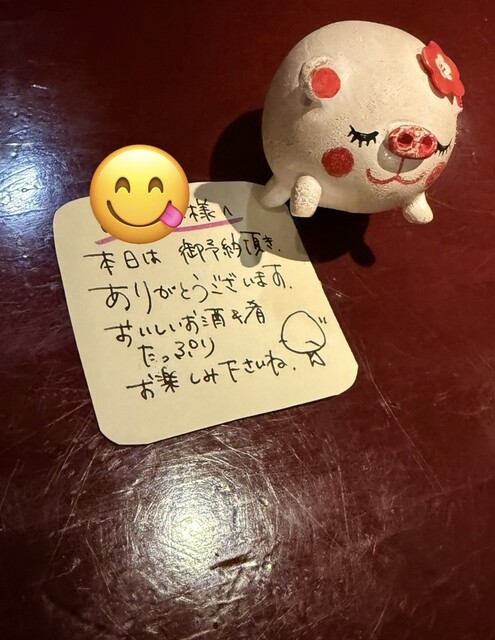 様へ
本日は 御予約頂き、
ありがとうございます。
おいしいお酒&肴
たっぷり
お楽しみ下さいね。